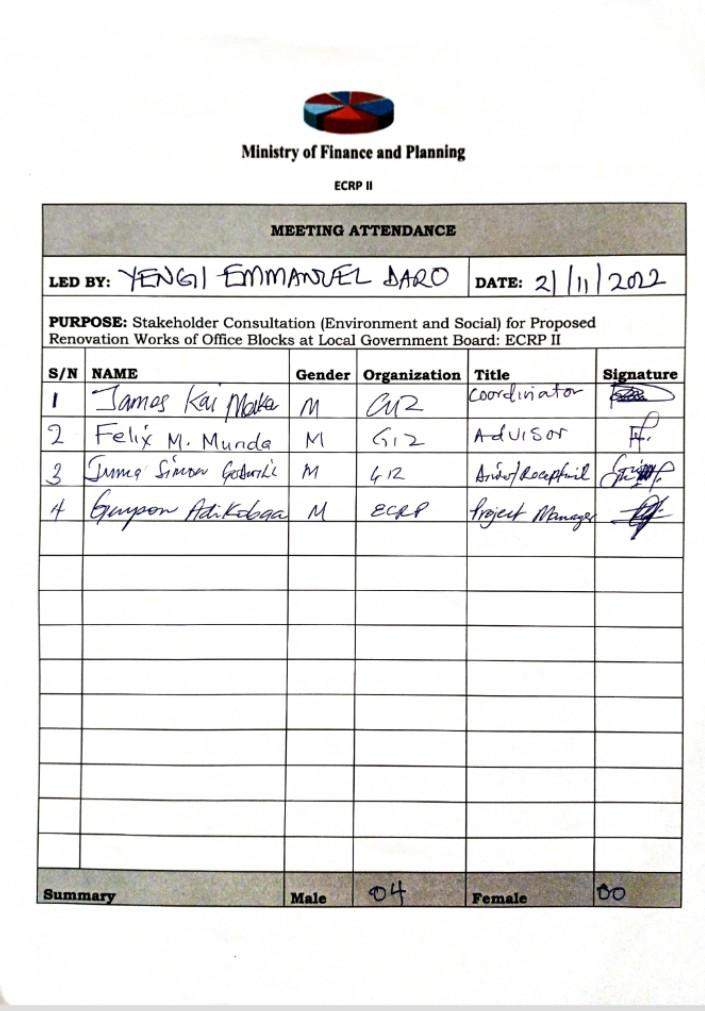 Ministry of Finance and Planning
ECRP II
MEETING ATTENDANCE
LED BY: YENGI EMMANUEL DARO DATE: 2/11/2022
PURPOSE: Stakeholder Consultation (Environment and Social) for Proposed
Renovation Works of Office Blocks at Local Government Board: ECRP II
S/N NAME Gender Organization Title Signature
1 James Kai M Coordinator
2 Felix M. Munda M G12 Advisor
3 Simon M G12
4 M ECRP Project Manager
Summary Male 04 Female 00